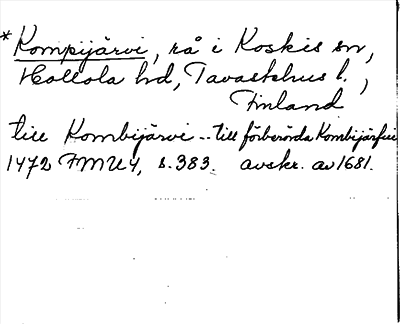 *Kompijärvi, rå i Koskis sn,
Hollola hd, Tavastehus l.,
Finland
till Kombijärvi -- till förberörda Kombijärfui
1472 FMU4, s. 383. avskr. av 1681.